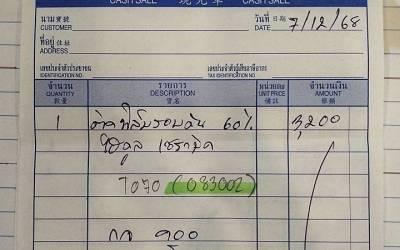 CASH SALE 現兌單 CASH SALE
นาม 寶號
CUSTOMER
วันที่ 日期 DATE 7/12/68
ที่อยู่ 住址
ADDRESS
เลขประจำตัวประชาชน
IDENTIFICATION NO.
เลขประจำตัวผู้เสียภาษีอากร
TAX IDENTIFICATION NO.
จำนวน รายการ หน่วยละ จำนวนเงิน
QUANTITY DESCRIPTION UNIT PRICE AMOUNT
數量 貨名 備註 銀額
1 ติดฟิล์มรอบคัน 60% 3,200
เซรามิค
7070 (083002)
900